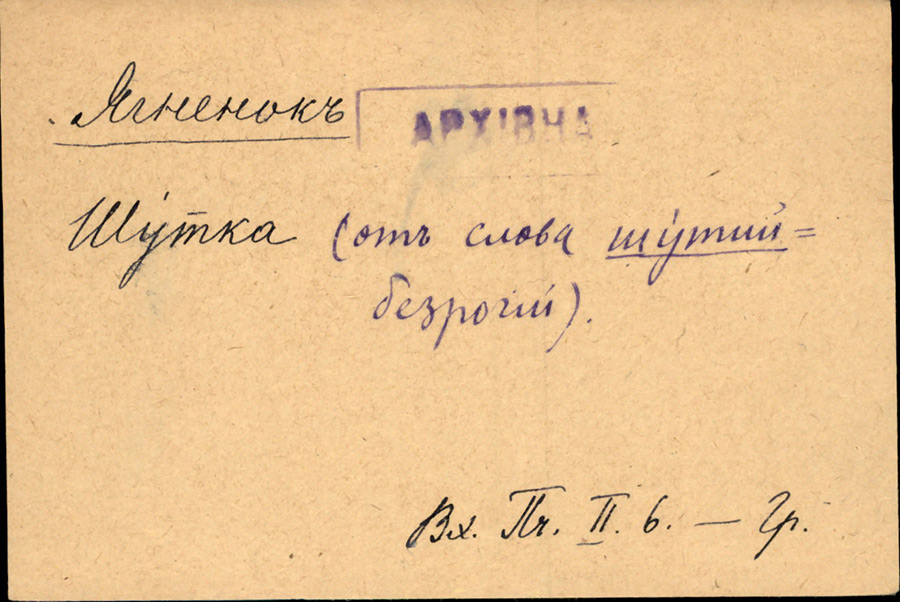 Ягненокъ
АРХІВНА
Шу́тка (отъ слова шу́тий =
безрогій).
Вх. Пч. II. 6. — Гр.